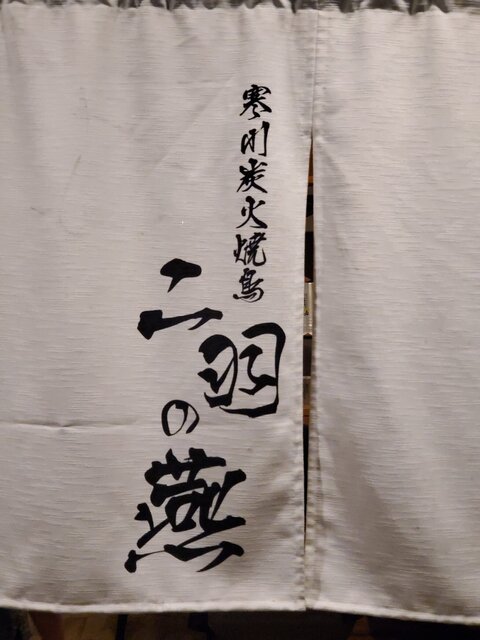 寒川炭火焼鳥
二羽の燕